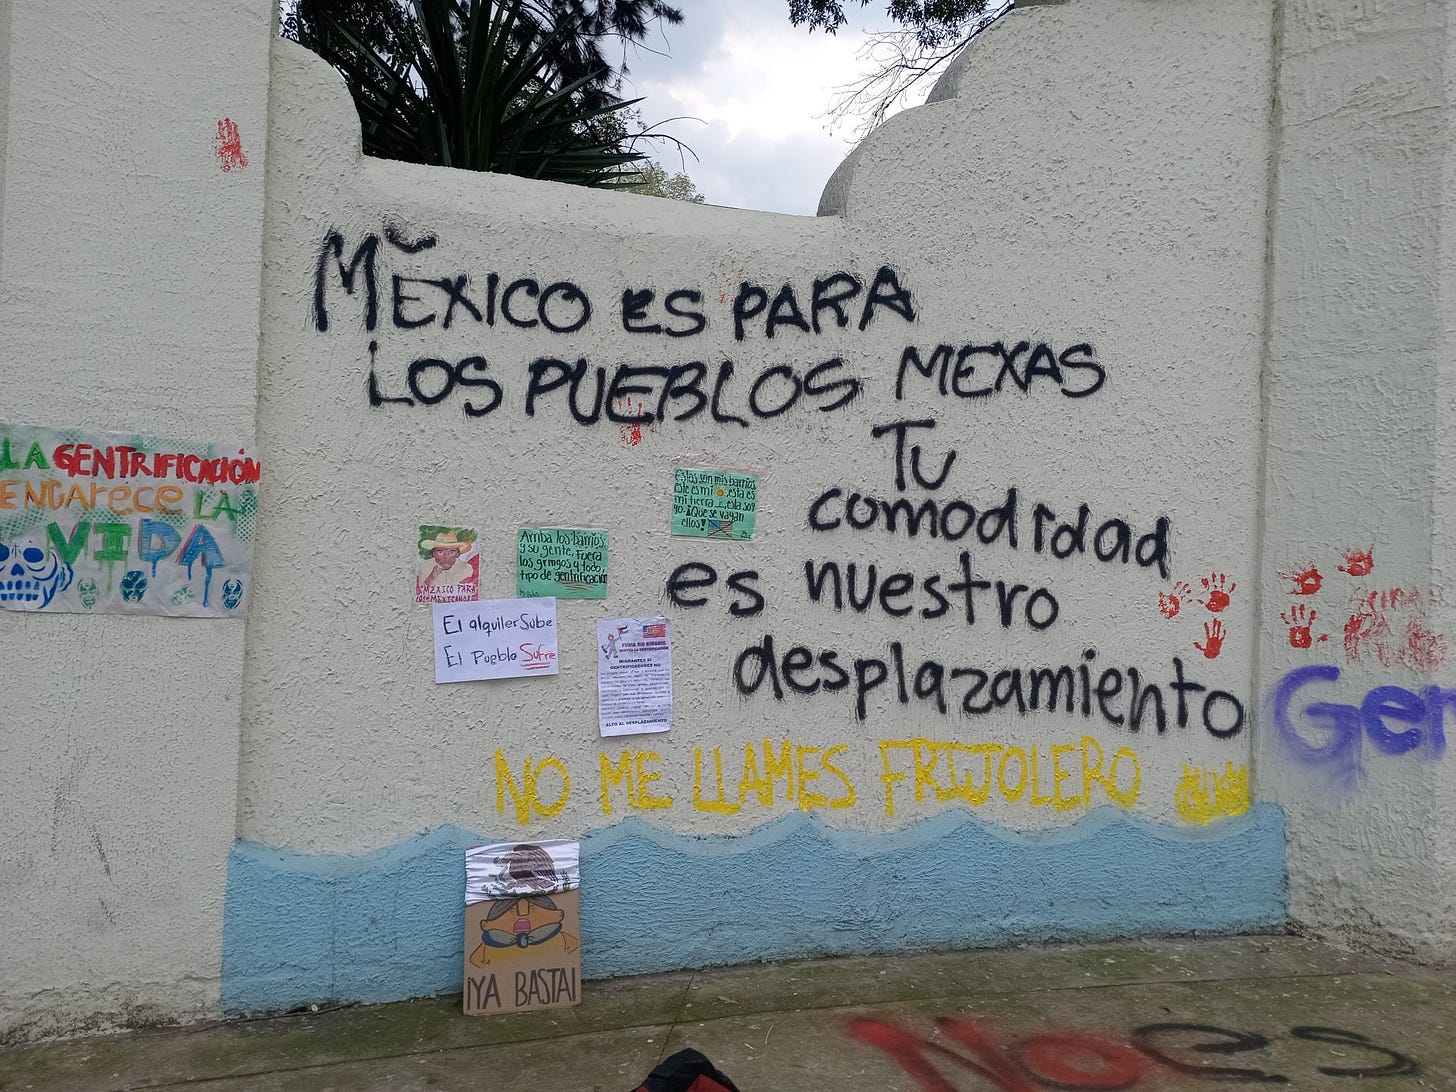 MĔXICO es PARA
LOS PUEBLOS MEXAS
Tu
comodidad
es nuestro
desplazamiento
NO ME LLAMES FRIJOLERO
LA GENTRIFICACIÓN
ENCARece LA
VIDA
Estos son mis barrios
este es mi esta es
mi tierra esta soy
yo. ¡Que se vayan
ellos!
Arriba los barrios
y su gente, Fuera
los gringos y todo
tipo de gentrificación
MÉXICO PARA
LOS MEXICANOS
El alquiler Sube
El Pueblo Sufre
FURIA NO BINARIA
CONTRA LA GENTRIFICACIÓN
MIGRANTES SÍ
GENTRIFICADORES NO
ALTO AL DESPLAZAMIENTO
¡YA BASTA!
Ger
No es